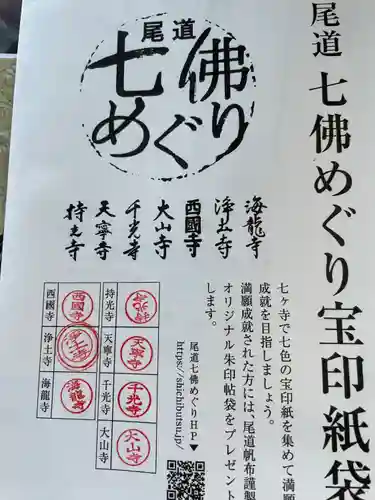 尾道 七佛めぐり宝印紙袋
尾道
七佛
めぐり
海龍寺
浄土寺
西國寺
大山寺
千光寺
天寧寺
持光寺
七ヶ寺で七色の宝印紙を集めて満願
成就を目指しましょう。
満願成就された方には、尾道帆布謹製
オリジナル朱印帖袋をプレゼント
します。
尾道七佛めぐりHP▼
https://shichibutsu.jp/
持光寺
天寧寺 天寧寺
千光寺 千光寺
大山寺 大山寺
西國寺 西國寺
浄土寺 浄土寺
海龍寺 海龍寺